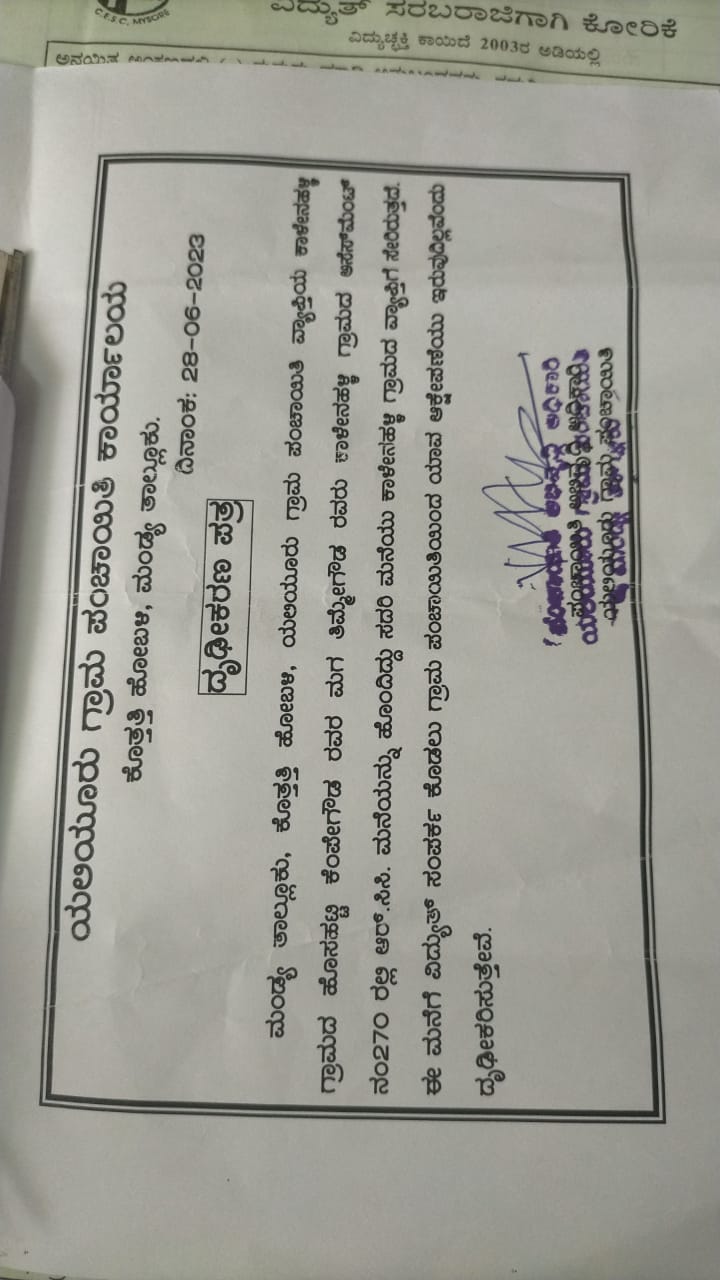 C.E.S.C, MYSORE
ವಿದ್ಯುತ್ ಸರಬರಾಜಿಗಾಗಿ ಕೋರಿಕೆ
ವಿದ್ಯುಚ್ಛಕ್ತಿ ಕಾಯಿದೆ 2003ರ ಅಡಿಯಲ್ಲಿ
ಯಲಿಯೂರು ಗ್ರಾಮ ಪಂಚಾಯಿತಿ ಕಾರ್ಯಾಲಯ
ಕೊತ್ತತ್ತಿ ಹೋಬಳಿ, ಮಂಡ್ಯ ತಾಲ್ಲೂಕು.
ದಿನಾಂಕ: 28-06-2023
ದೃಢೀಕರಣ ಪತ್ರ
ಮಂಡ್ಯ ತಾಲ್ಲೂಕು, ಕೊತ್ತತ್ತಿ ಹೋಬಳಿ, ಯಲಿಯೂರು ಗ್ರಾಮ ಪಂಚಾಯಿತಿ ವ್ಯಾಪ್ತಿಯ ಕಾಳೇನಹಳ್ಳಿ
ಗ್ರಾಮದ ಹೊಸಹಟ್ಟಿ ಕೆಂಪೇಗೌಡ ರವರ ಮಗ ತಿಮ್ಮೇಗೌಡ ರವರು ಕಾಳೇನಹಳ್ಳಿ ಗ್ರಾಮದ ಅಸೆಸ್‌ಮೆಂಟ್
ನಂ270 ರಲ್ಲಿ ಆರ್.ಸಿ.ಸಿ. ಮನೆಯನ್ನು ಹೊಂದಿದ್ದು ಸದರಿ ಮನೆಯು ಕಾಳೇನಹಳ್ಳಿ ಗ್ರಾಮದ ವ್ಯಾಪ್ತಿಗೆ ಸೇರಿರುತ್ತದೆ.
ಈ ಮನೆಗೆ ವಿದ್ಯುತ್ ಸಂಪರ್ಕ ಕೊಡಲು ಗ್ರಾಮ ಪಂಚಾಯಿತಿಯಿಂದ ಯಾವ ಆಕ್ಷೇಪಣೆಯು ಇರುವುದಿಲ್ಲವೆಂದು
ದೃಢೀಕರಿಸುತ್ತೇವೆ.
ಪಂಚಾಯಿತಿ ಅಭಿವೃದ್ಧಿ ಅಧಿಕಾರಿ
ಯಲಿಯೂರು ಗ್ರಾಮ ಪಂಚಾಯಿತಿ